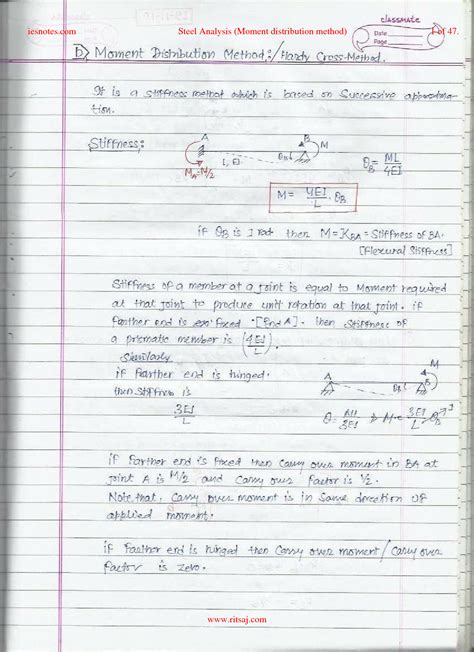 iesnotes.com Steel Analysis (Moment distribution method) 1 of 47.
classmate
Date
Page
D) Moment Distribution Method:/Hardy Cross-Method.
It is a stiffness method which is based on Successive approxima-
tion.
Stiffness:
A B M
L, EI θB
M_A=M/2
θB = ML/4EI
M = 4EI/L · θB
if θB is 1 rad then M = K_BA = Stiffness of BA.
[Flexural Stiffness]
Stiffness of a member at a joint is equal to Moment required
at that joint to produce unit rotation at that joint. if
farther end is fixed [End A]. then stiffness of
a prismatic member is (4EI/L)
Similarly
if farther end is hinged.
then stiffness is
3EI/L
A B M
θ
θ = Ml/3EI ⇒ M = 3EI/L θ
if farther end is fixed then Carry over moment in BA at
joint A is M/2 and Carry over factor is 1/2.
Note that. Carry over moment is in Same direction of
applied moment.
if Farther end is hinged then Carry over moment/Carry over
factor is zero.
www.ritsaj.com